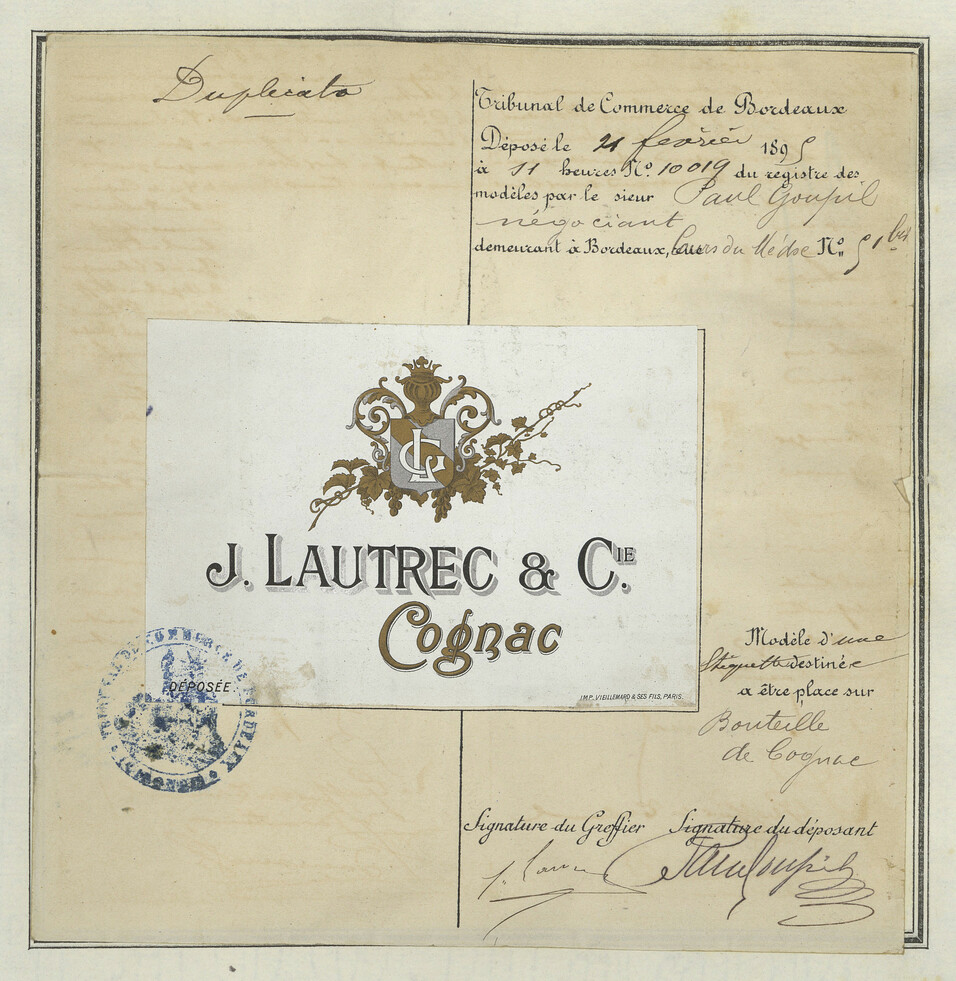 Duplicata
Tribunal de Commerce de Bordeaux
Déposé le 21 février 1895
à 11 heures No. 10019 du registre des
modèles par le sieur Paul Goupil
négociant
demeurant à Bordeaux, Cours du Médoc No. 51 bis
LG
J. LAUTREC & CIE.
Cognac
DÉPOSÉE.
IMP. VIEILLEMARD & SES FILS, PARIS.
TRIBUNAL DE COMMERCE DE BORDEAUX
Modèle d'une
étiquette destinée
a être place sur
Bouteille
de Cognac
Signature du Greffier Signature du déposant
Paul Goupil